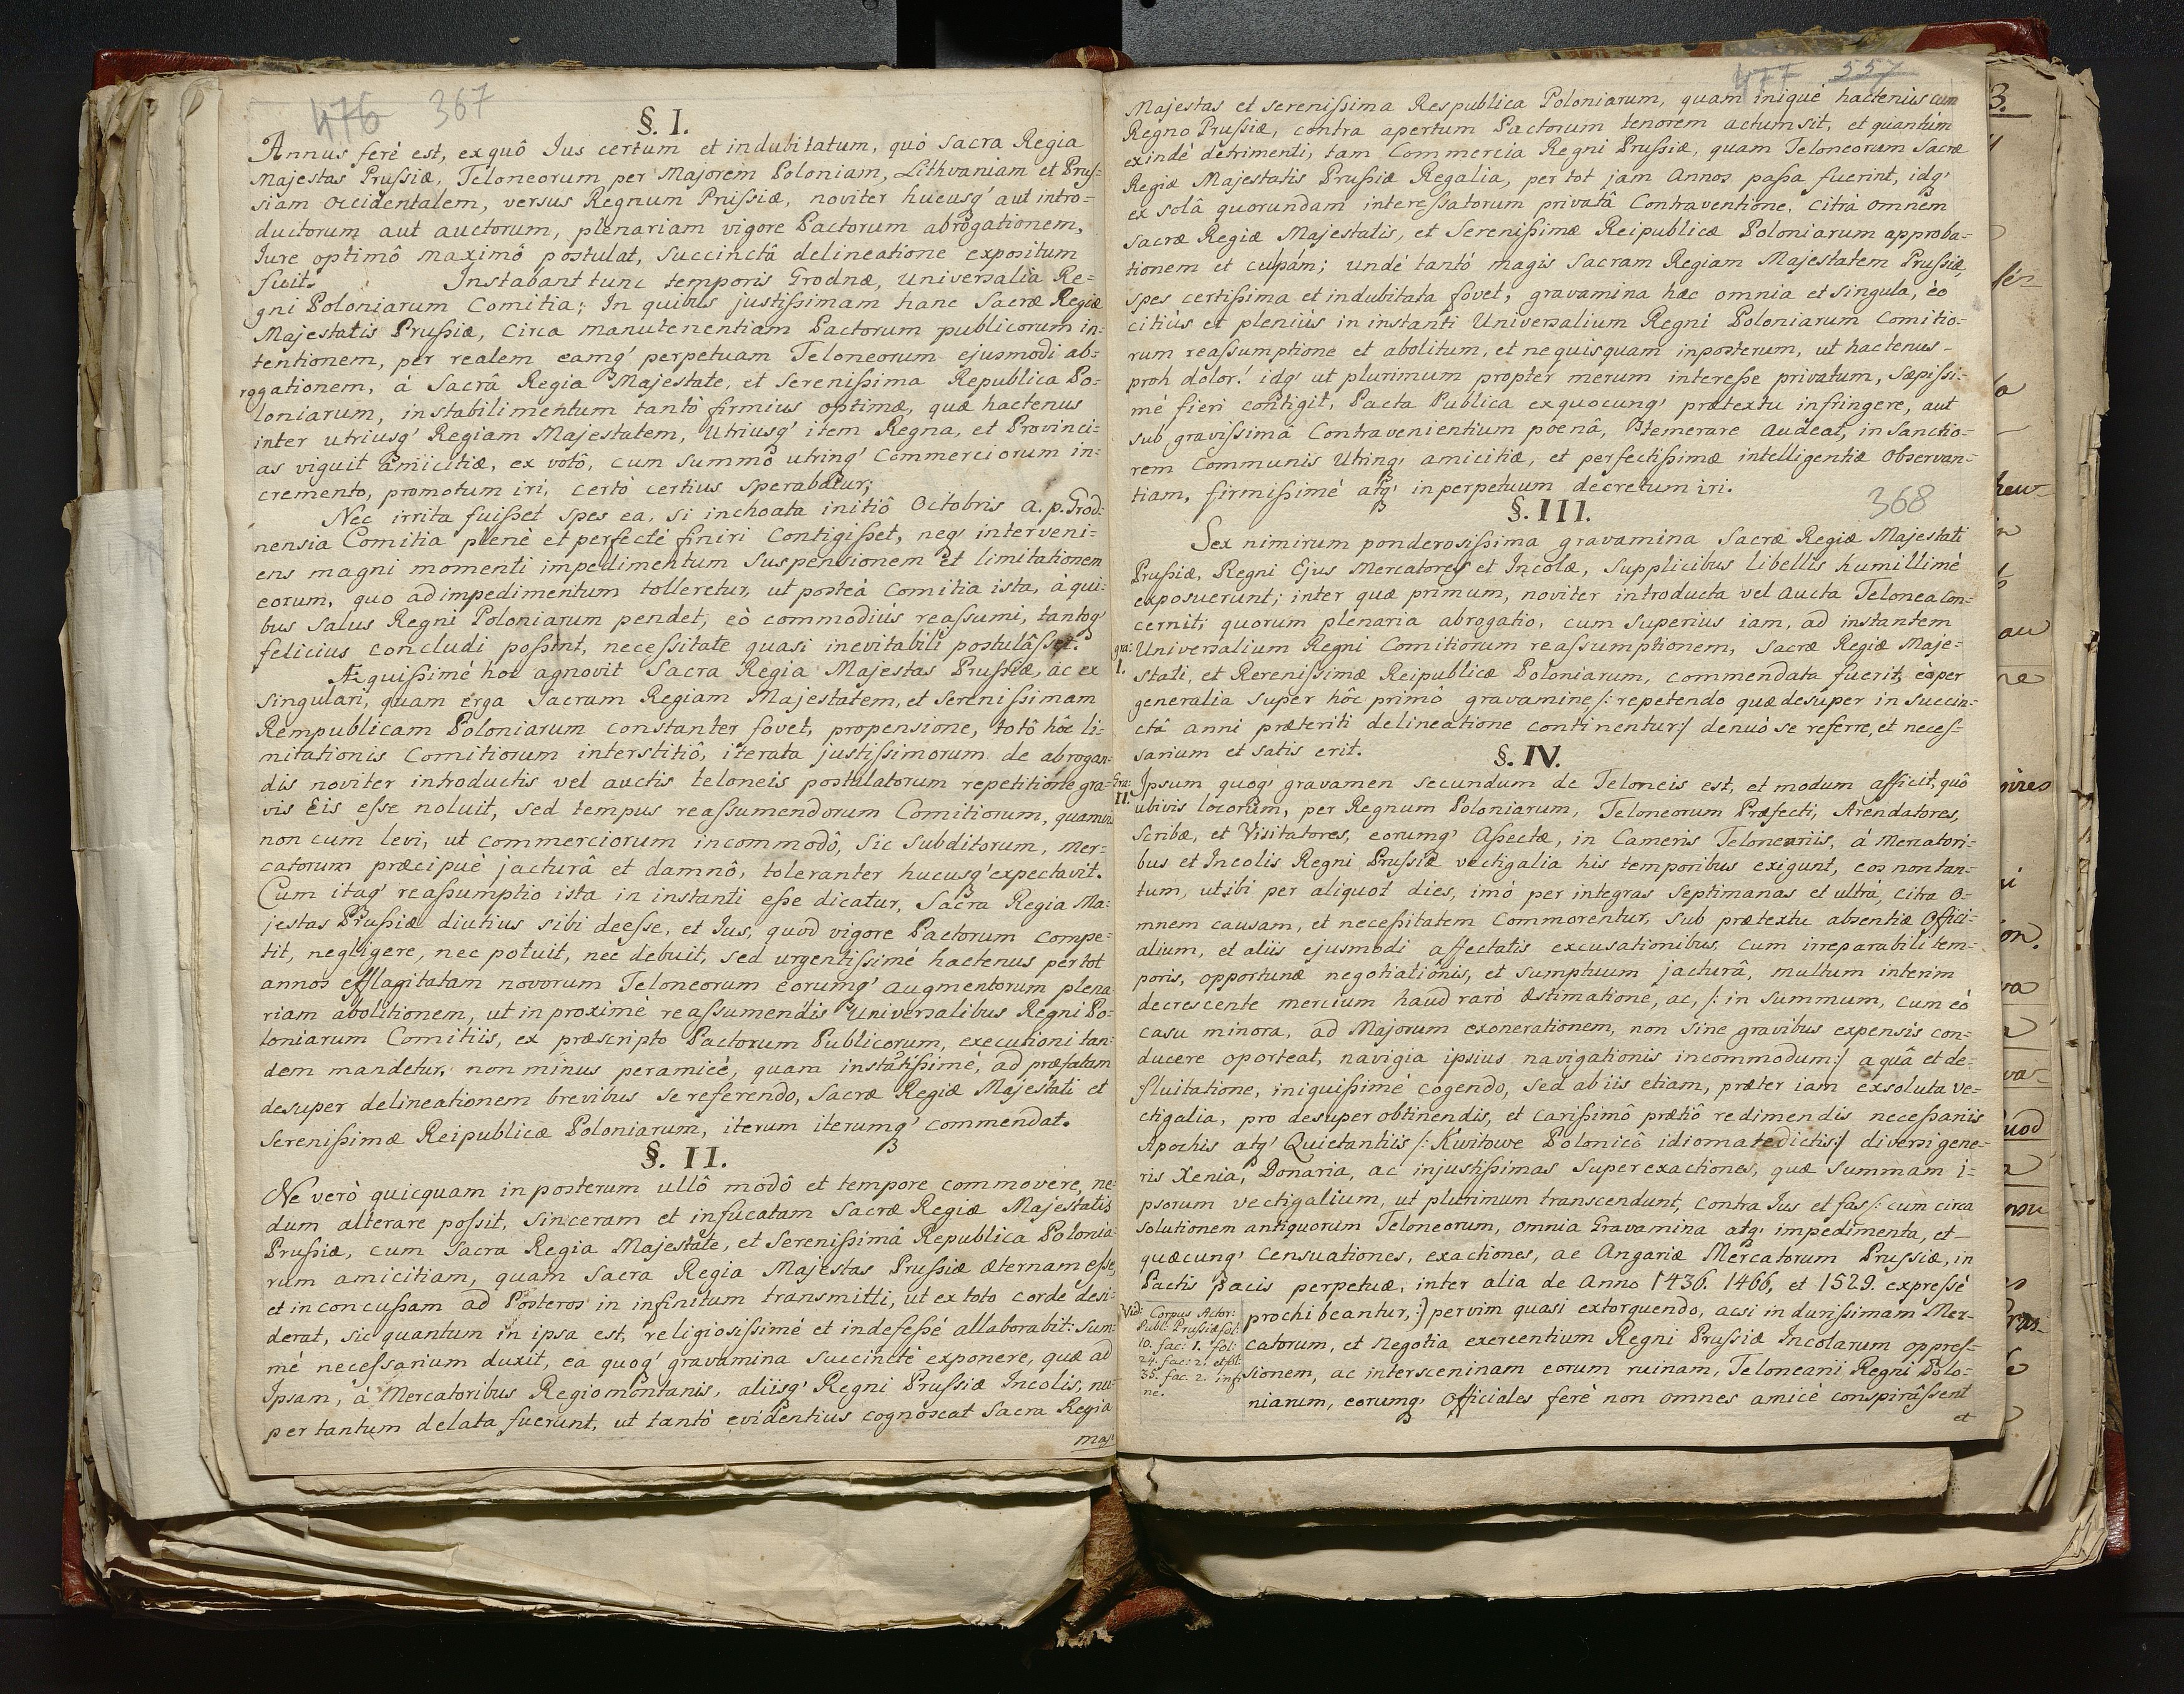 476 367
§. I.
Annus ferè est, ex quô Jus certum et indubitatum, quô Sacra Regia
Majestas Prußiæ, Teloneorum per Majorem Poloniam, Lithvaniam et Prus-
siam occidentalem, versus Regnum Prußiæ, noviter hucusq' aut intro-
ductorum aut auctorum, plenariam vigore Pactorum abrogationem,
Jure optimô maximô postulat, succinctâ delineatione expositum
fuit. Instabant tunc temporis Grodnæ, Universalia Re-
gni Poloniarum Comitia; In quibus justißimam hanc Sacræ Regiæ
Majestatis Prußiæ, circa manutenentiam Pactorum publicorum in-
tentionem, per realem eamq' perpetuam Teloneorum ejusmodi ab-
rogationem, à Sacrâ Regia Majestate, et Serenißima Republica Po-
loniarum, in stabilimentum tantò firmius optimæ, quæ hactenus
inter utriusq' Regiam Majestatem, Utriusq' item Regna, et Provinci-
as viguit amicitiæ, ex votô, cum summô utrinq' Commerciorum in-
cremento, promotum iri, certò certius sperabatur;
Nec irrita fuißet spes ea, si inchoata initiô Octobris a. p. Grod-
nensia Comitia plenè et perfectè finiri contigißet, neq' interveni-
ens magni momenti impedimentum suspensionem et limitationem
eorum, quo ad impedimentum tolleretur, ut posteà Comitia ista, à qui-
bus salus Regni Poloniarum pendet, eò commodiùs reaßumi, tantoq'
felicius concludi poßint, necessitate quasi inevitabili postulâsset.
Æquißimè hoc agnovit Sacra Regia Majestas Prußiæ, ac ex
singulari, quam erga Sacram Regiam Majestatem, et Serenissimam
Rempublicam Poloniarum constanter fovet, propensione, totô hôc li-
mitationis Comitiorum interstitiô, iterata justissimorum de abrogan-
dis noviter introductis vel auctis teloneis postulatorum repetitione gra-
vis Eis esse noluit, sed tempus reassumendorum Comitiorum, quamvis
non cum levi, ut commerciorum incommodô, sic subditorum, mer-
catorum præcipuè jacturâ et damnô, toleranter hucusq' expectavit.
Cum itaq' reaßumptio ista in instanti eße dicatur, Sacra Regia Ma-
jestas Prußiæ diutius sibi deesse, et Jus, quod vigore Pactorum compe-
tit, negligere, nec potuit, nec debuit, sed urgentißimè hactenus per tot
annos efflagitatam novorum Teloneorum eorumq' augmentorum plena-
riam abolitionem, ut in proximè reassumendis Universalibus Regni Po-
loniarum Comitiis, ex præscripto Pactorum Publicorum, executioni tan-
dem mandetur, non minus peramicè, quam instantißimè, ad præfatam
desuper delineationem brevibus se referendo, Sacræ Regiæ Majestati et
Serenißimæ Reipublicæ Poloniarum, iterum iterumq' commendat.
§. II.
Ne verò quicquam in posterum ullô modô et tempore commovere, ne-
dum alterare possit, sinceram et infucatam Sacræ Regiæ Majestatis
Prußiæ, cum Sacra Regia Majestate, et Serenißimâ Republica Polonia-
rum amicitiam, quam Sacra Regia Majestas Prußiæ æternam esse,
et inconcußam ad Posteros in infinitum transmitti, ut ex toto corde desi-
derat, sic quantum in ipsa est, religiosissimè et indefeßè allaborabit: sum-
mè necessarium duxit, ea quoq' gravamina succinctè exponere, quæ ad
Ipsam, à Mercatoribus Regiomontanis, aliisq' Regni Prußiæ Incolis, nu-
per tantum delata fuerunt, ut tantò evidentius cognoscat Sacra Regia
Maj-
477 557
Majestas et serenißima Respublica Poloniarum, quam iniquè hactenus cum
Regno Prußiæ, contra apertum Pactorum tenorem actum sit, et quantùm
exindè detrimenti, tam Commercia Regni Prußiæ, quam Teloneorum Sacræ
Regiæ Majestatis Prußiæ Regalia, per tot jam Annos paßa fuerint, idq'
ex solâ quorundam interessatorum privatâ Contraventione, citrà omnem
Sacræ Regiæ Majestatis, et Serenißimæ Reipublicæ Poloniarum approba-
tionem et culpam; undè tantò magis Sacram Regiam Majestatem Prußiæ,
spes certißima et indubitata fovet, gravamina hæc omnia et singula, eò
citiùs et pleniùs in instanti Universalium Regni Poloniarum Comitio-
rum reaßumptione et abolitum, et ne quisquam inposterum, ut hactenus-
proh dolor! idq' ut plurimum propter merum intereße privatum, sæpissi-
mè fieri contigit, Pacta Publica ex quocunq' prætextu infringere, aut
sub gravißimâ Contravenientium poenâ, temerare audeat, in sanctio-
rem Communis Utrinq' amicitiæ, et perfectißimæ intelligentiæ observan-
tiam, firmißimè atq' in perpetuum decretum iri.
§. III. 368
Sex nimirum ponderosißima gravamina Sacræ Regiæ Majestati
Prußiæ, Regni Ejus Mercatores et Incolæ, supplicibus libellis humillimè
exposuerunt; inter quæ primum, noviter introducta vel aucta Telonea con-
cernit; quorum plenaria abrogatio, cum superius iam, ad instantem
gra: I. Universalium Regni Comitiorum reassumptionem, Sacræ Regiæ Maje-
stati, et Rerenißimæ Reipublicæ Poloniarum, commendata fuerit, eò per
generalia super hôc primô gravamine /: repetendo quæ desuper in succin-
ctâ anni præteriti delineatione continentur:/ denuò se referre, et neces-
sarium et satis erit.
§. IV.
Gra: II. Ipsum quoq' gravamen secundum de Teloneis est, et modum afficit, quô
ubivis locorùm, per Regnum Poloniarum, Teloneorum Præfecti, Arendatores,
Scribæ, et Visitatores, eorumq' Aßectæ, in Cameris Teloneariis, à Mercatori-
bus et Incolis Regni Prußiæ vectigalia his temporibus exigunt, eos non tan-
tum, ut ibi per aliquot dies, imò per integras Septimanas et ultrà, citra o-
mnem causam, et neceßitatem Commorentur, sub prætextu absentiæ Offici-
alium, et aliis ejusmodi affectatis excusationibus, cum irreparabili tem-
poris, opportunæ negotiationis, et sumptuum jacturâ, multum interim
decrescente mercium haud rarò æstimatione, ac, /: in summum, cum eò
casu minora, ad Majorum exonerationem, non sine gravibus expensis con-
ducere oporteat, navigia ipsius navigationis incommodum:/ aquâ et de-
fluitatione, iniquißimè cogendo, sed ab iis etiam, præter iam exsoluta ve-
ctigalia, pro desuper obtinendis, et carißimô prætiô redimendis neceßariis
Apochis atq' Quietantiis /: Kwitowe Polonicô idiomate dictis:/ diversi gene-
ris Xenia, Donaria, ac injustißimas superexactiones, quæ summam i-
psorum vectigalium, ut plurimum transcendunt, contra Jus et fas /: cum circa
solutionem antiquorum Teloneorum, omnia Gravamina atq' impedimenta, et
quæcunq' censuationes, exactiones, ac Angariæ Mercatorum Prussiæ, in
Pactis pacis perpetuæ, inter alia de Anno 1436. 1466, et 1529. expressè
prochibeantur,:/ per vim quasi extorquendo, acsi in durißimam Mer-
catorum, et Negotia exercentium Regni Prußiæ Incolarum oppres-
sionem, ac intersceninam eorum ruinam, Telonearii Regni Polo-
niarum, eorumq' Officiales ferè non omnes amicè conspirâßent
et
Vid: Corpus Actor:
Publ: Prußiæ fol:
10. fac: 1. fol:
24. fac: 2. et fol:
35. fac. 2. infi-
ne.